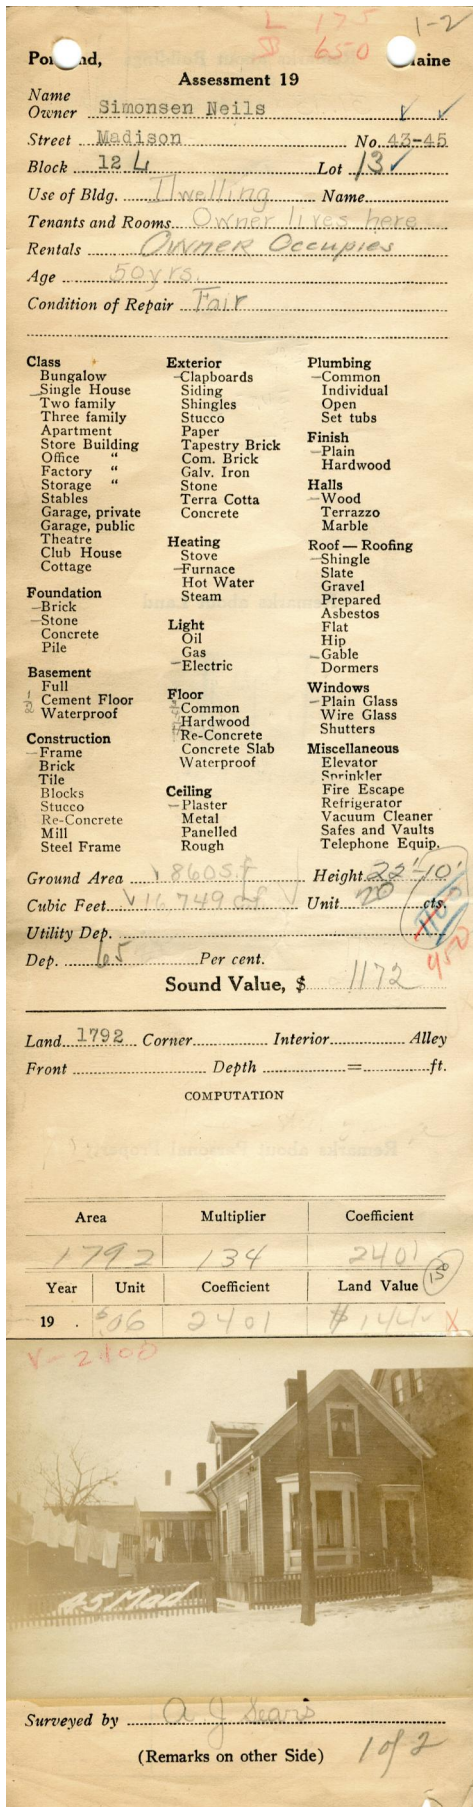 L 175 1-2
B 650
Por nd, aine
Assessment 19
Name
Owner Simonsen Neils ✓ ✓
Street Madison No. 43-45
Block 12 L Lot 13 ✓
Use of Bldg. Dwelling Name
Tenants and Rooms Owner lives here
Rentals Owner Occupies
Age 50 yrs.
Condition of Repair Fair
Class
Bungalow
Single House
Two family
Three family
Apartment
Store Building
Office "
Factory "
Storage "
Stables
Garage, private
Garage, public
Theatre
Club House
Cottage
Foundation
Brick
Stone
Concrete
Pile
Basement
Full
1/2 Cement Floor
Waterproof
Construction
Frame
Brick
Tile
Blocks
Stucco
Re-Concrete
Mill
Steel Frame
Exterior
Clapboards
Siding
Shingles
Stucco
Paper
Tapestry Brick
Com. Brick
Galv. Iron
Stone
Terra Cotta
Concrete
Heating
Stove
Furnace
Hot Water
Steam
Light
Oil
Gas
Electric
Floor
Common
Hardwood
Re-Concrete
Concrete Slab
Waterproof
Ceiling
Plaster
Metal
Panelled
Rough
Plumbing
Common
Individual
Open
Set tubs
Finish
Plain
Hardwood
Halls
Wood
Terrazzo
Marble
Roof — Roofing
Shingle
Slate
Gravel
Prepared
Asbestos
Flat
Hip
Gable
Dormers
Windows
Plain Glass
Wire Glass
Shutters
Miscellaneous
Elevator
Sprinkler
Fire Escape
Refrigerator
Vacuum Cleaner
Safes and Vaults
Telephone Equip.
Ground Area ✓ 860 s.f. Height 22'-10'
Cubic Feet ✓ 16749 c.f. Unit 20 cts.
Utility Dep.
450
Dep. 65 Per cent.
Sound Value, $ 1172
Land 1792 Corner Interior Alley
Front Depth = ft.
COMPUTATION
Area Multiplier Coefficient
1792 134 2401
Year Unit Coefficient Land Value
19 . $.06 2401 $144 X
V-2100
45 Mad
Surveyed by A J Sears
(Remarks on other Side) 1 of 2